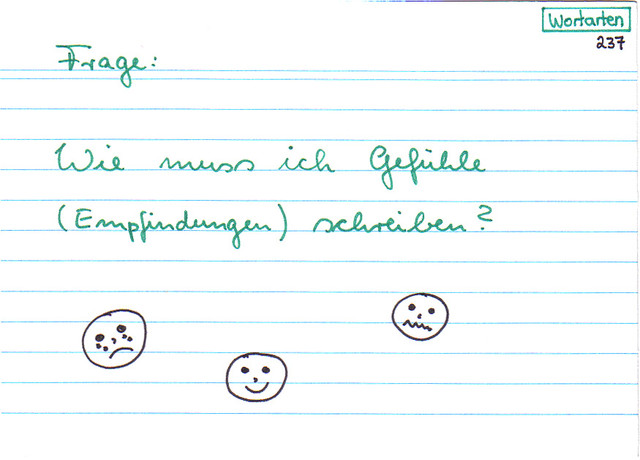 Wortarten
237
Frage:
Wie muss ich Gefühle
(Empfindungen) schreiben?